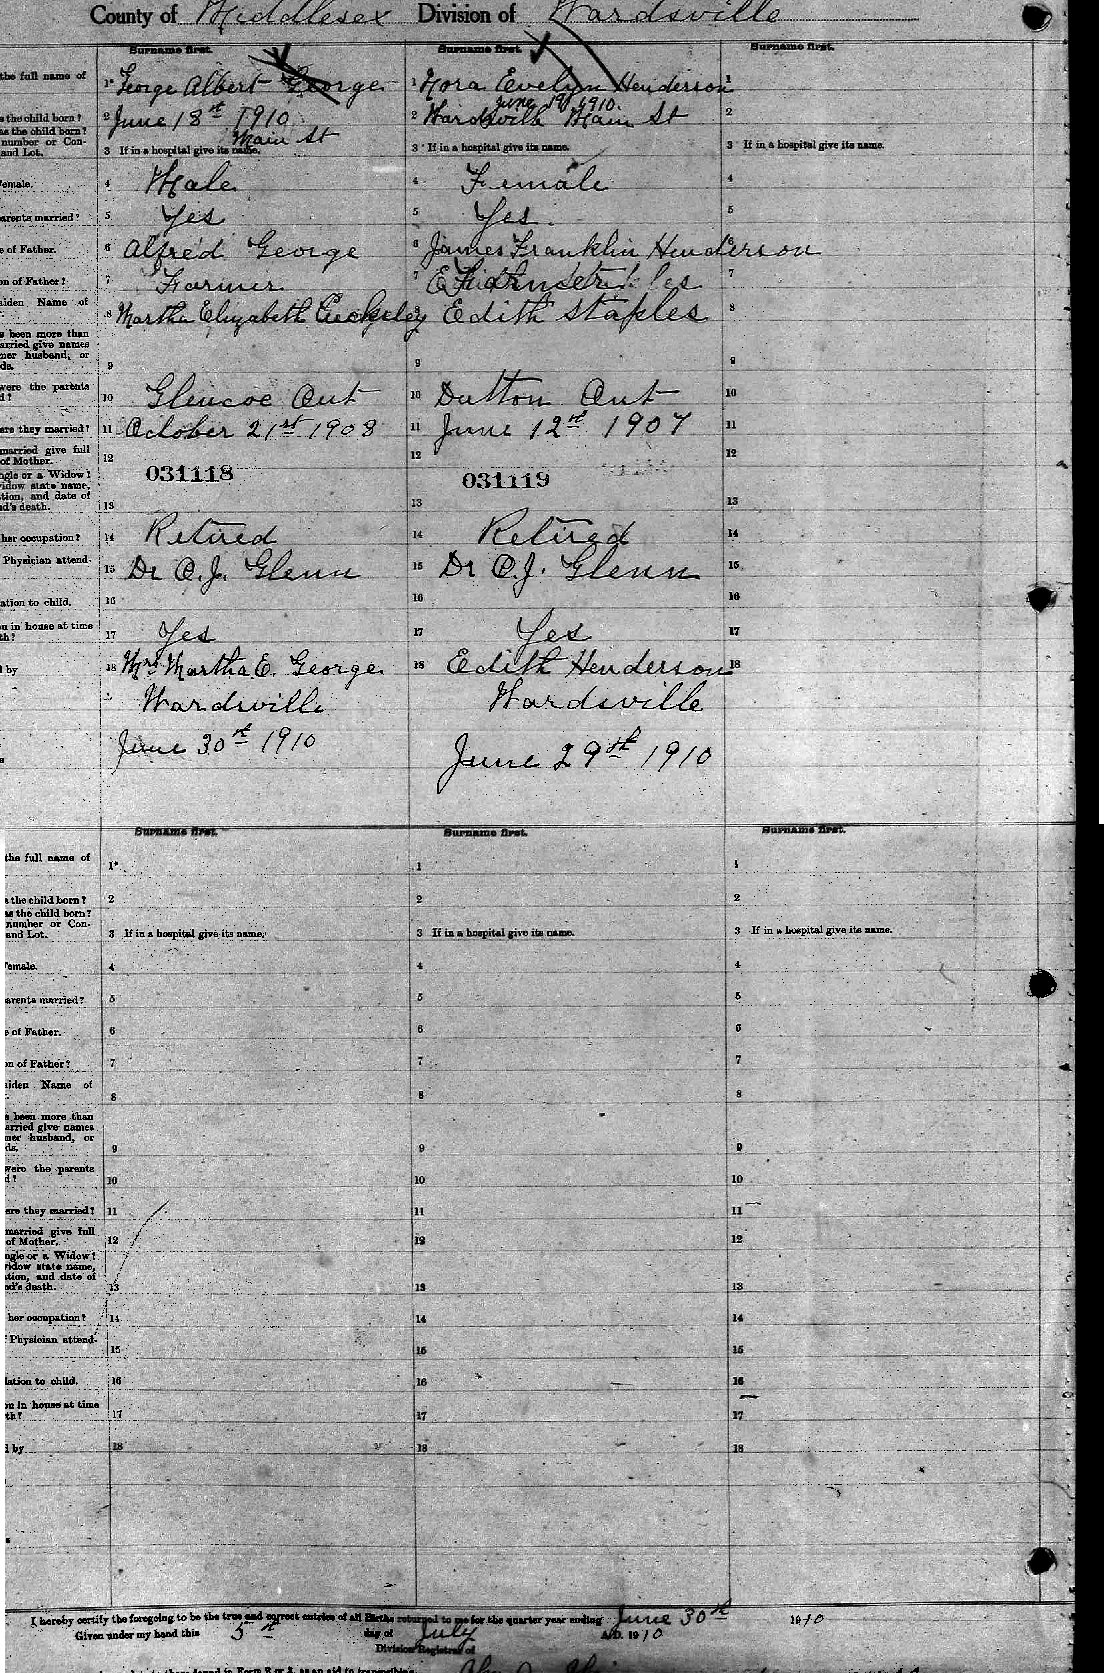 County of Middlesex Division of Wardsville
Surname first. Surname first. Surname first.
the full name of 1 George Albert George 1 Nora Evelyn Henderson 1
June 19 1910.
s the child born? 2 June 18st 1910 2 Wardsville Main St 2
as the child born?
number or Con-
and Lot. Main St
3 If in a hospital give its name. 3 If in a hospital give its name. 3 If in a hospital give its name.
Female. 4 Male 4 Female 4
parents married? 5 Yes 5 Yes. 5
e of Father. 6 Alfred George 6 James Franklin Henderson 6
on of Father? 7 Farmer 7 7
aiden Name of 8 Martha Elizabeth 8 Edith Staples 8
s been more than
arried give names
mer husband, or
ds. 9 9 9
were the parents
d? 10 Glencoe Ont 10 Dutton Ont 10
ere they married? 11 October 21st 1908 11 June 12st 1907 11
married give full
of Mother. 12 12 12
ngle or a Widow?
widow state name,
tion, and date of
nd's death. 13 031118 13 031119 13
her occupation? 14 Retired 14 Retired 14
Physician attend- 15 Dr C.J. Glenn 15 Dr C.J. Glenn 15
ation to child. 16 16 16
u in house at time
th? 17 Yes 17 Yes 17
d by 18 Mrs Martha E. George 18 Edith Henderson 18
Wardsville Wardsville
June 30st 1910 June 29th 1910
Surname first. Surname first. Surname first.
the full name of 1 1 1
s the child born? 2 2 2
as the child born?
number or Con-
and Lot. 3 If in a hospital give its name. 3 If in a hospital give its name. 3 If in a hospital give its name.
Female. 4 4 4
parents married? 5 5 5
e of Father. 6 6 6
on of Father? 7 7 7
aiden Name of 8 8 8
s been more than
arried give names
mer husband, or
ds. 9 9 9
were the parents
d? 10 10 10
ere they married? 11 11 11
married give full
of Mother. 12 12 12
ngle or a Widow?
widow state name,
tion, and date of
nd's death. 13 13 13
her occupation? 14 14 14
Physician attend- 15 15 15
lation to child. 16 16 16
u in house at time
th? 17 17 17
d by 18 18 18
I hereby certify the foregoing to be the true and correct entries of all Births returned to me for the quarter year ending June 30th 1910
Given under my hand this 5th day of July A.D. 1910
Division Registrar of